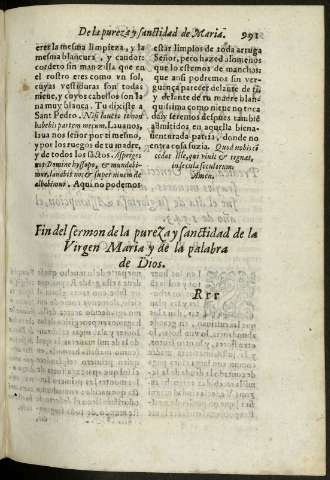 De la pureza y sanctidad de Maria. 991
eres la mesma limpieza, y la
mesma blancura, y candor:
cordero sin manzilla que en
el rostro eres como vn sol,
cuyas vestiduras son todas
nieue, y cuyos cabellos son la
na muy blanca. Tu dixiste a
Sant Pedro. Nisi lauero te non
habebis partem mecum. Lauanos,
laua nos señor por ti mesmo,
y por los ruegos de tu madre,
y de todos los sãctos. Asperges
me Domine hyssopo, & mundabor,
lauabis me & super niuem de
albabimur. Aqui no podemos
estar limpios de toda arruga
Señor, pero hazed alomenos
que lo estemos de manchas:
que ansi podremos sin ver-
guença parecer delante de ti
y delante de tu madre blan
quissima como nieue no toca
da: y seremos despues tambiẽ
admitidos en aquella biena-
uenturada patria, donde no
entra cosa suzia. Quod nobis cõ
cedas Iesu, qui viuis & regnas,
in secula seculorum.
Amen.
Fin del sermon de la pureza y sanctidad de la
Virgen Maria y de la palabra
de Dios.
Rrr